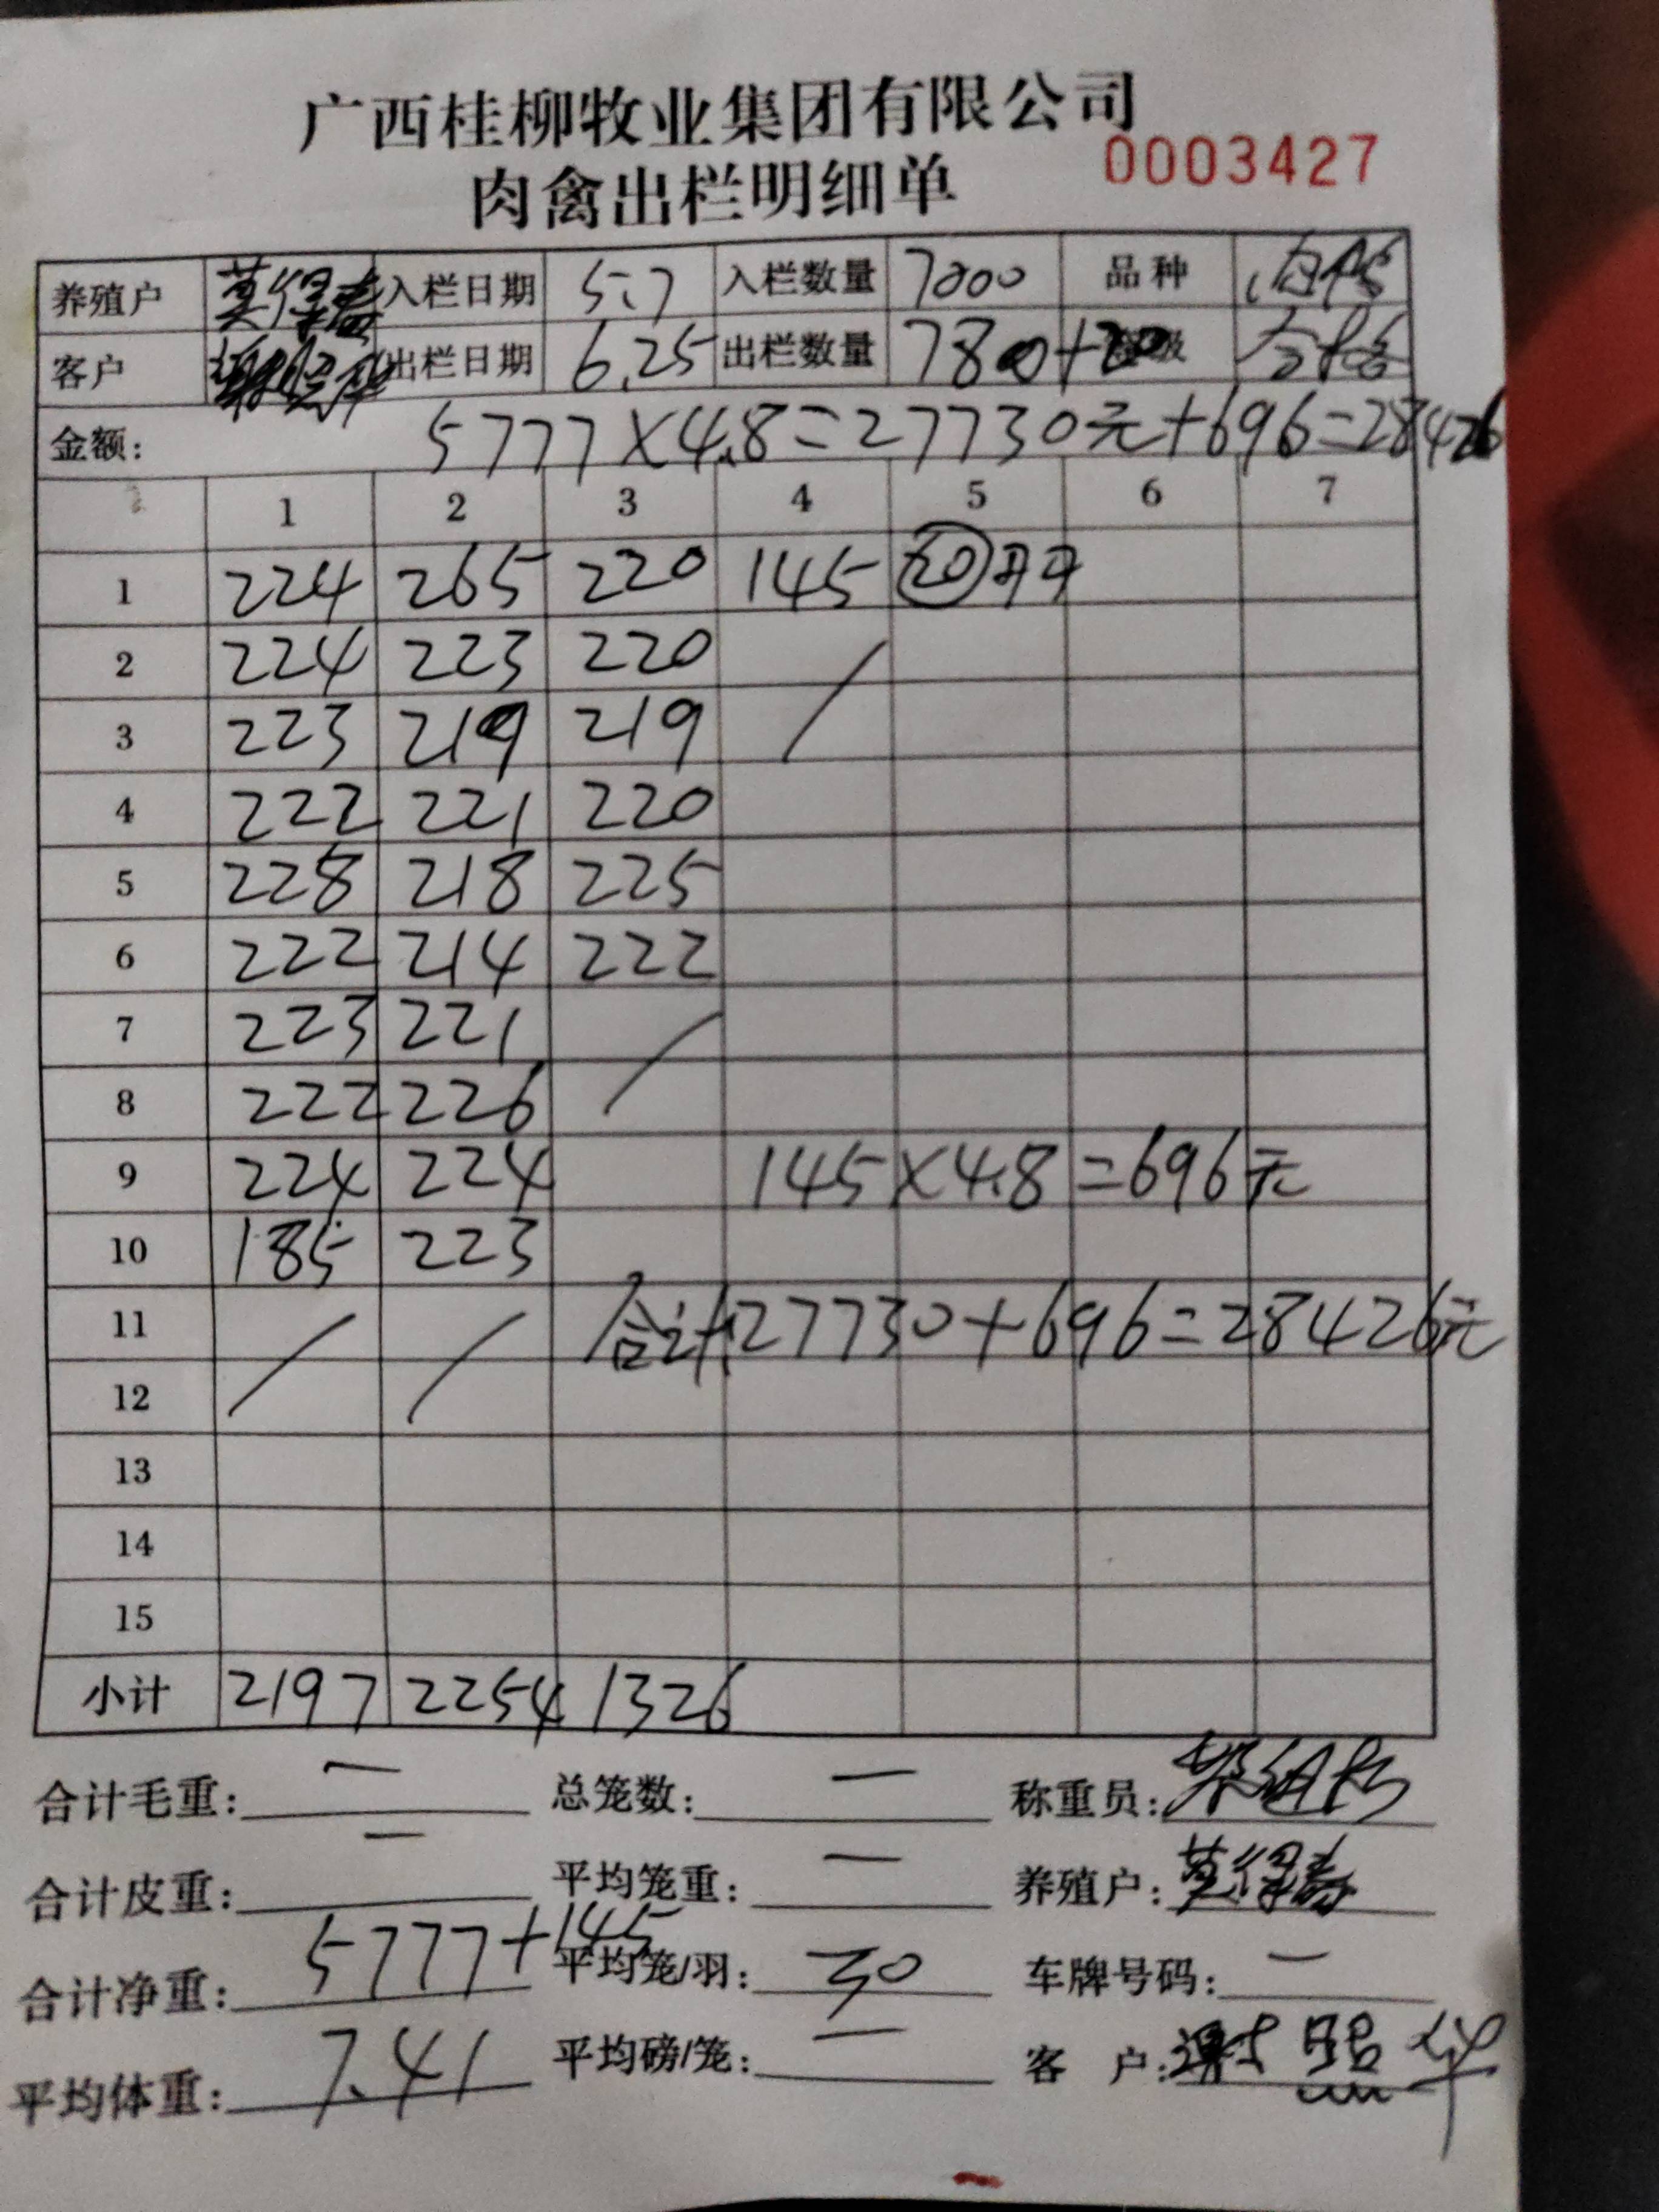 广西桂柳牧业集团有限公司
肉禽出栏明细单 0003427
养殖户 莫保春 入栏日期 5.7 入栏数量 7000 品种
客户 出栏日期 6.25 出栏数量 780+20 合格
金额: 5777×4.8=27730元+696=28426
1 2 3 4 5 6 7
1 224 265 220 145
2 224 223 220
3 223 219 219
4 222 221 220
5 228 218 225
6 222 214 222
7 223 221
8 222 226
9 224 224 145×4.8=696元
10 185 223
11 合计:27730+696=28426元
12
13
14
15
小计 2197 2254 1326
合计毛重: — 总笼数: — 称重员:
合计皮重: — 平均笼重: — 养殖户: 莫保春
合计净重: 5777+145 平均笼/羽: 30 车牌号码: —
平均体重: 7.41 平均磅/笼: — 客 户: 谢照华